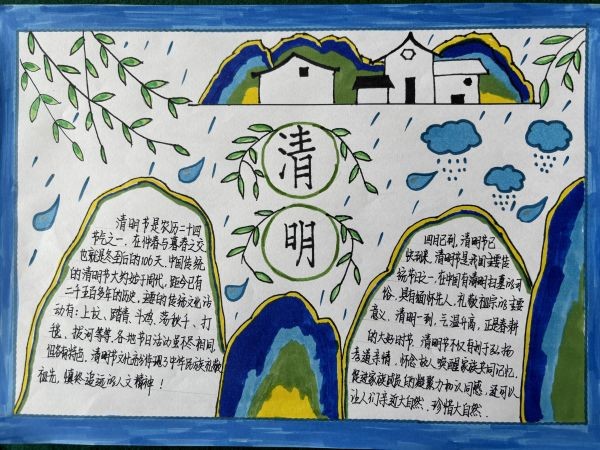 清
明
清明节是农历二十四
节气之一，在仲春与暮春之交
也就是冬至后的106天，中国传统
的清明节大约始于周代，距今已有
二千五百多年的历史，主要的传统文化活
动有：上坟、踏青、斗鸡、荡秋千、打
毯、拔河等等，各地节日活动虽不尽相同，
但各有特色，清明节文化充分体现了中华民族礼敬
祖先，慎终追远的人文精神！
四月已到，清明节已
快到来，清明节是我国重要传
统节日之一，在中国有清明扫墓的习
俗，具有缅怀先人、礼敬祖宗的重要
意义，清明一到，气温升高，正是春耕
的大好时节，清明节不仅有利于弘扬
孝道亲情、怀念故人唤醒家族共同记忆，
促进家族成员的凝聚力和认同感，还可以
让人们亲近大自然、珍惜大自然。